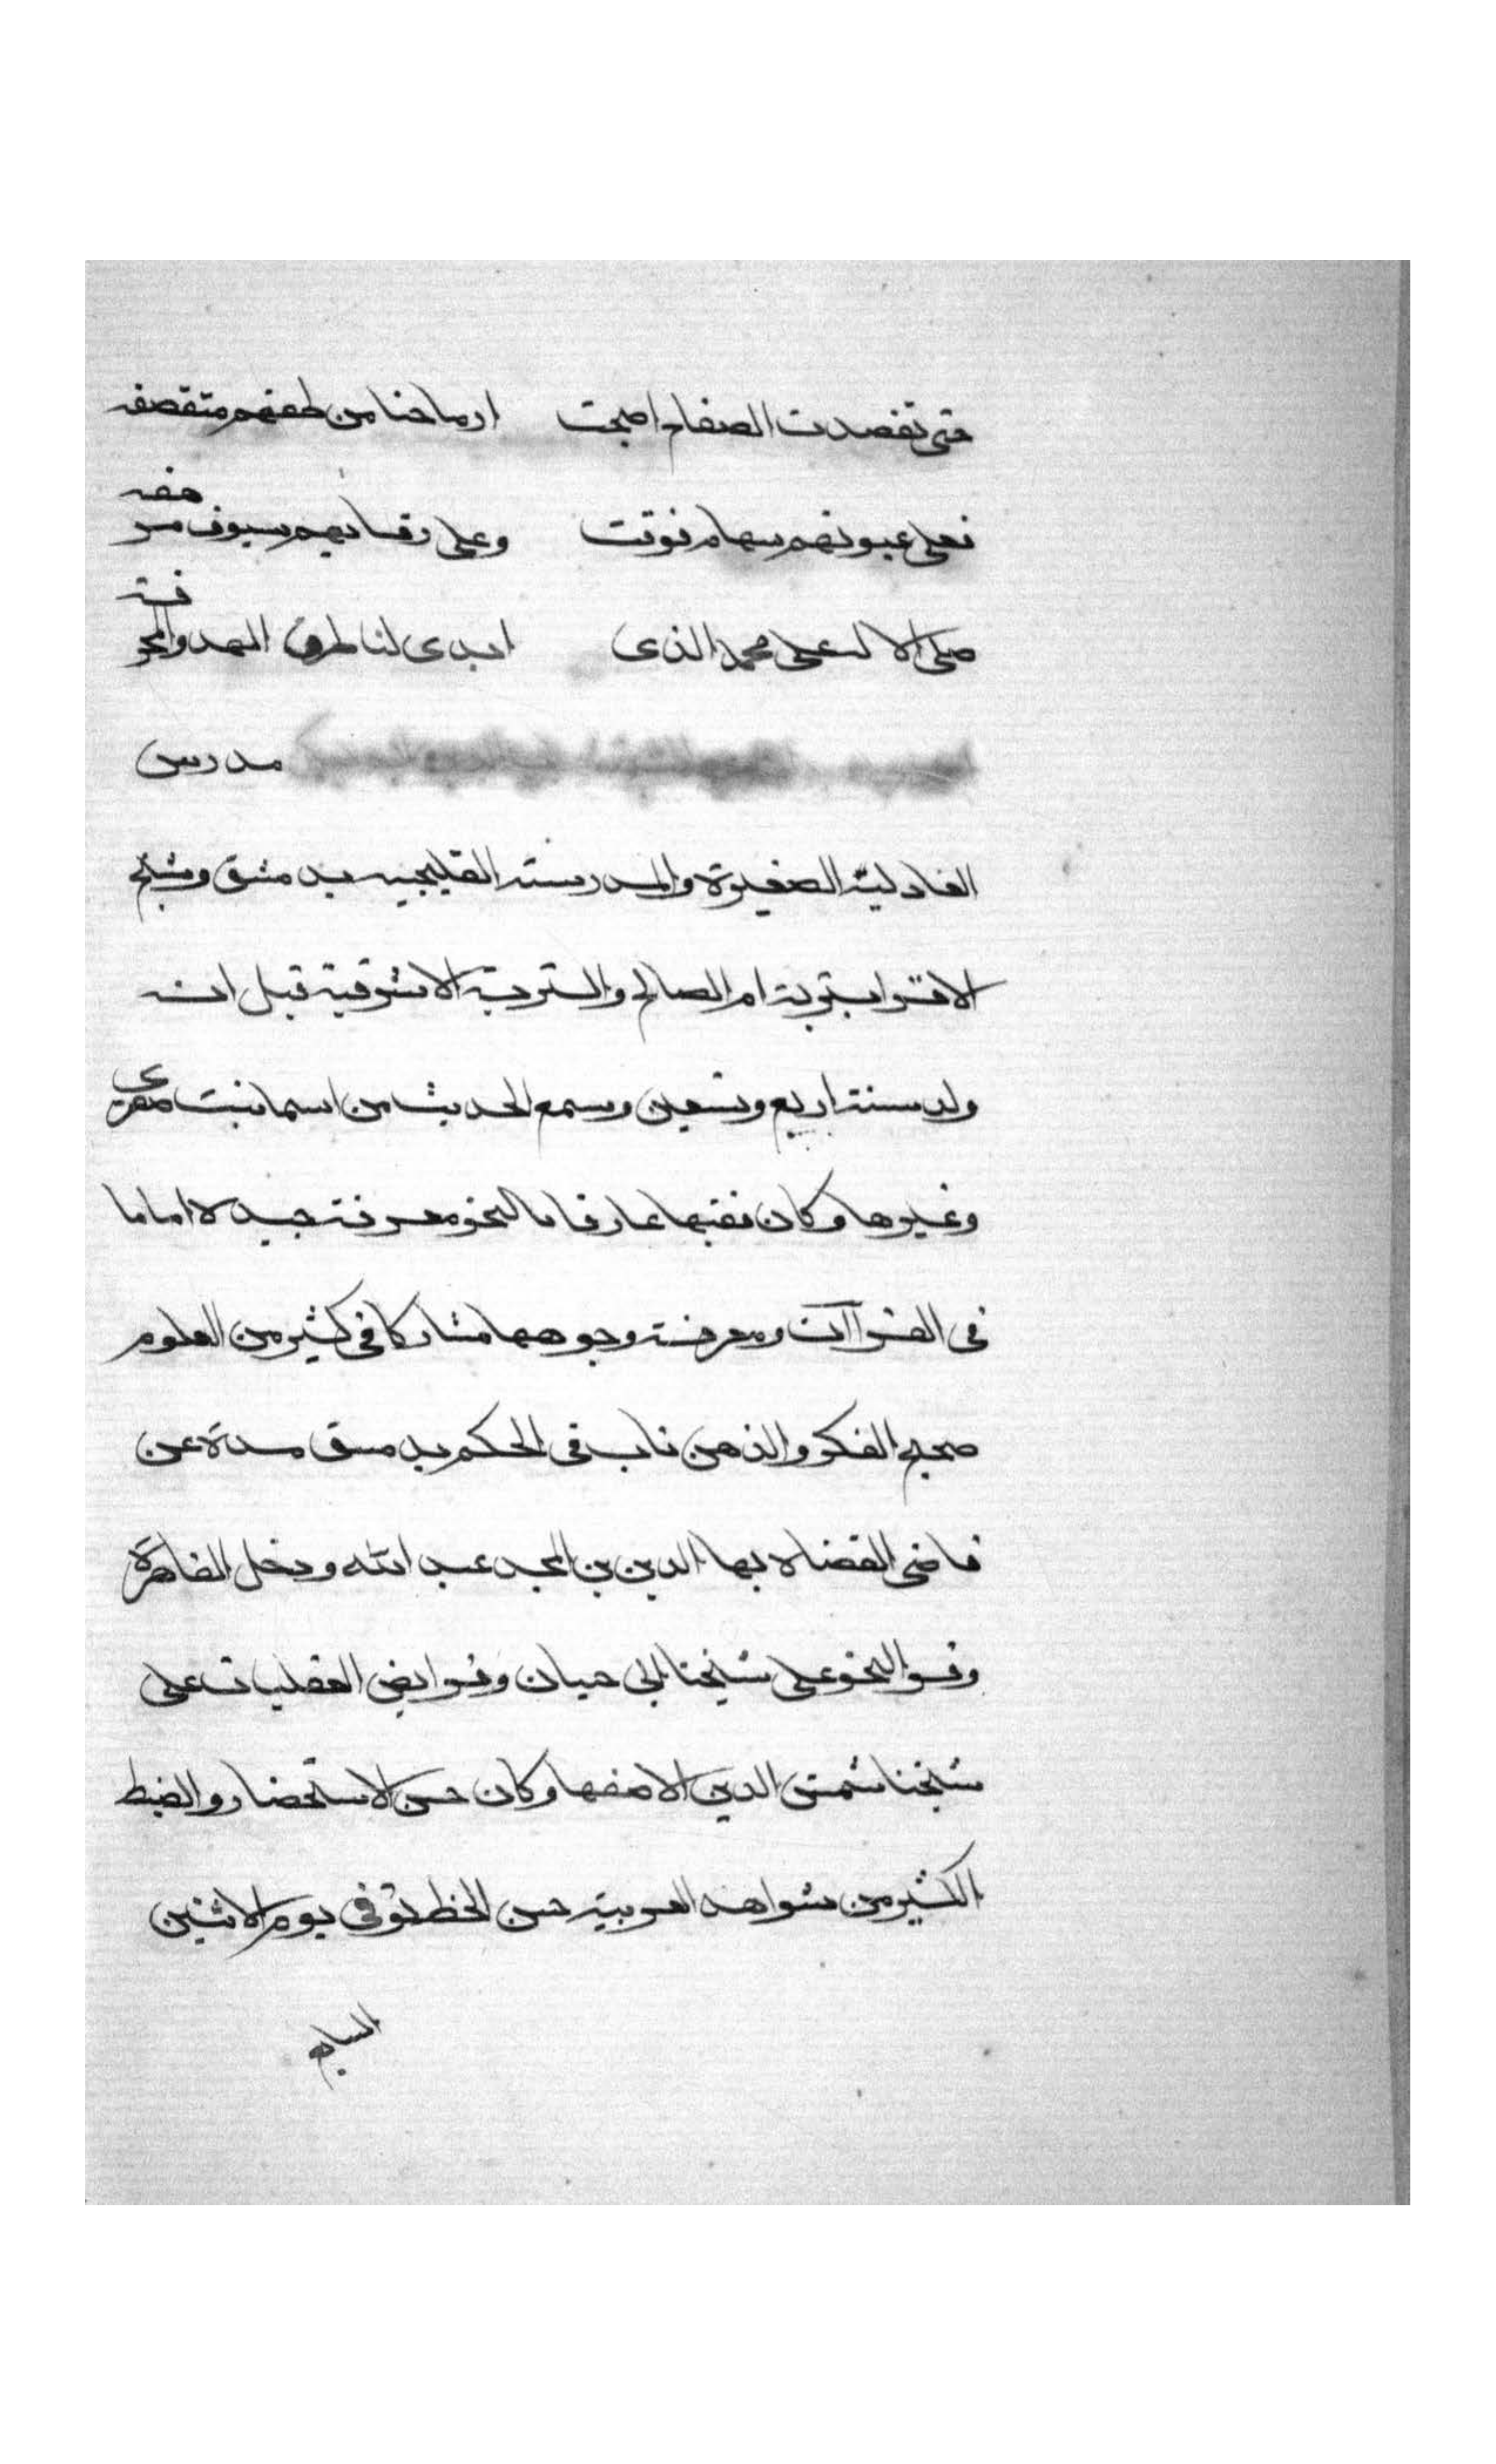 حتى تقصدت الصفاح اصبحت ارماحنا من طعنهم متقصفه
فعلى عيونهم سهام فوقت وعلى رقابهم سيوف مرهفه
صلى الاله على محمد الذى ابدى لنا طرق الهدى والمعرفة
مدرس
العادلية الصغيرة والمدرسة القليجيه بدمشق وشيخ
الاقرا بتربة ام الصالح والتربة الاشرفية قيل انه
ولد سنة اربع وتسعين وسمع الحديث من اسما بنت صصرى
وغيرها وكان فقيها عارفا بالنحو معرفة جيدة اماما
فى القراآت ومعرفة وجوهها مشاركا فى كثير من العلوم
صحيح الفكر والذهن ناب فى الحكم بدمشق مدة عن
قاضى القضاة بها الدين بن المجد عبد الله ودخل القاهرة
وقرا النحو على شيخنا ابى حيان وقرا بعض العقليات على
شيخنا شمس الدين الاصفها وكان حسن الاستحضار والضبط
الكثير من شواهد العربية حسن الخط توفى يوم الاثنين
السابع